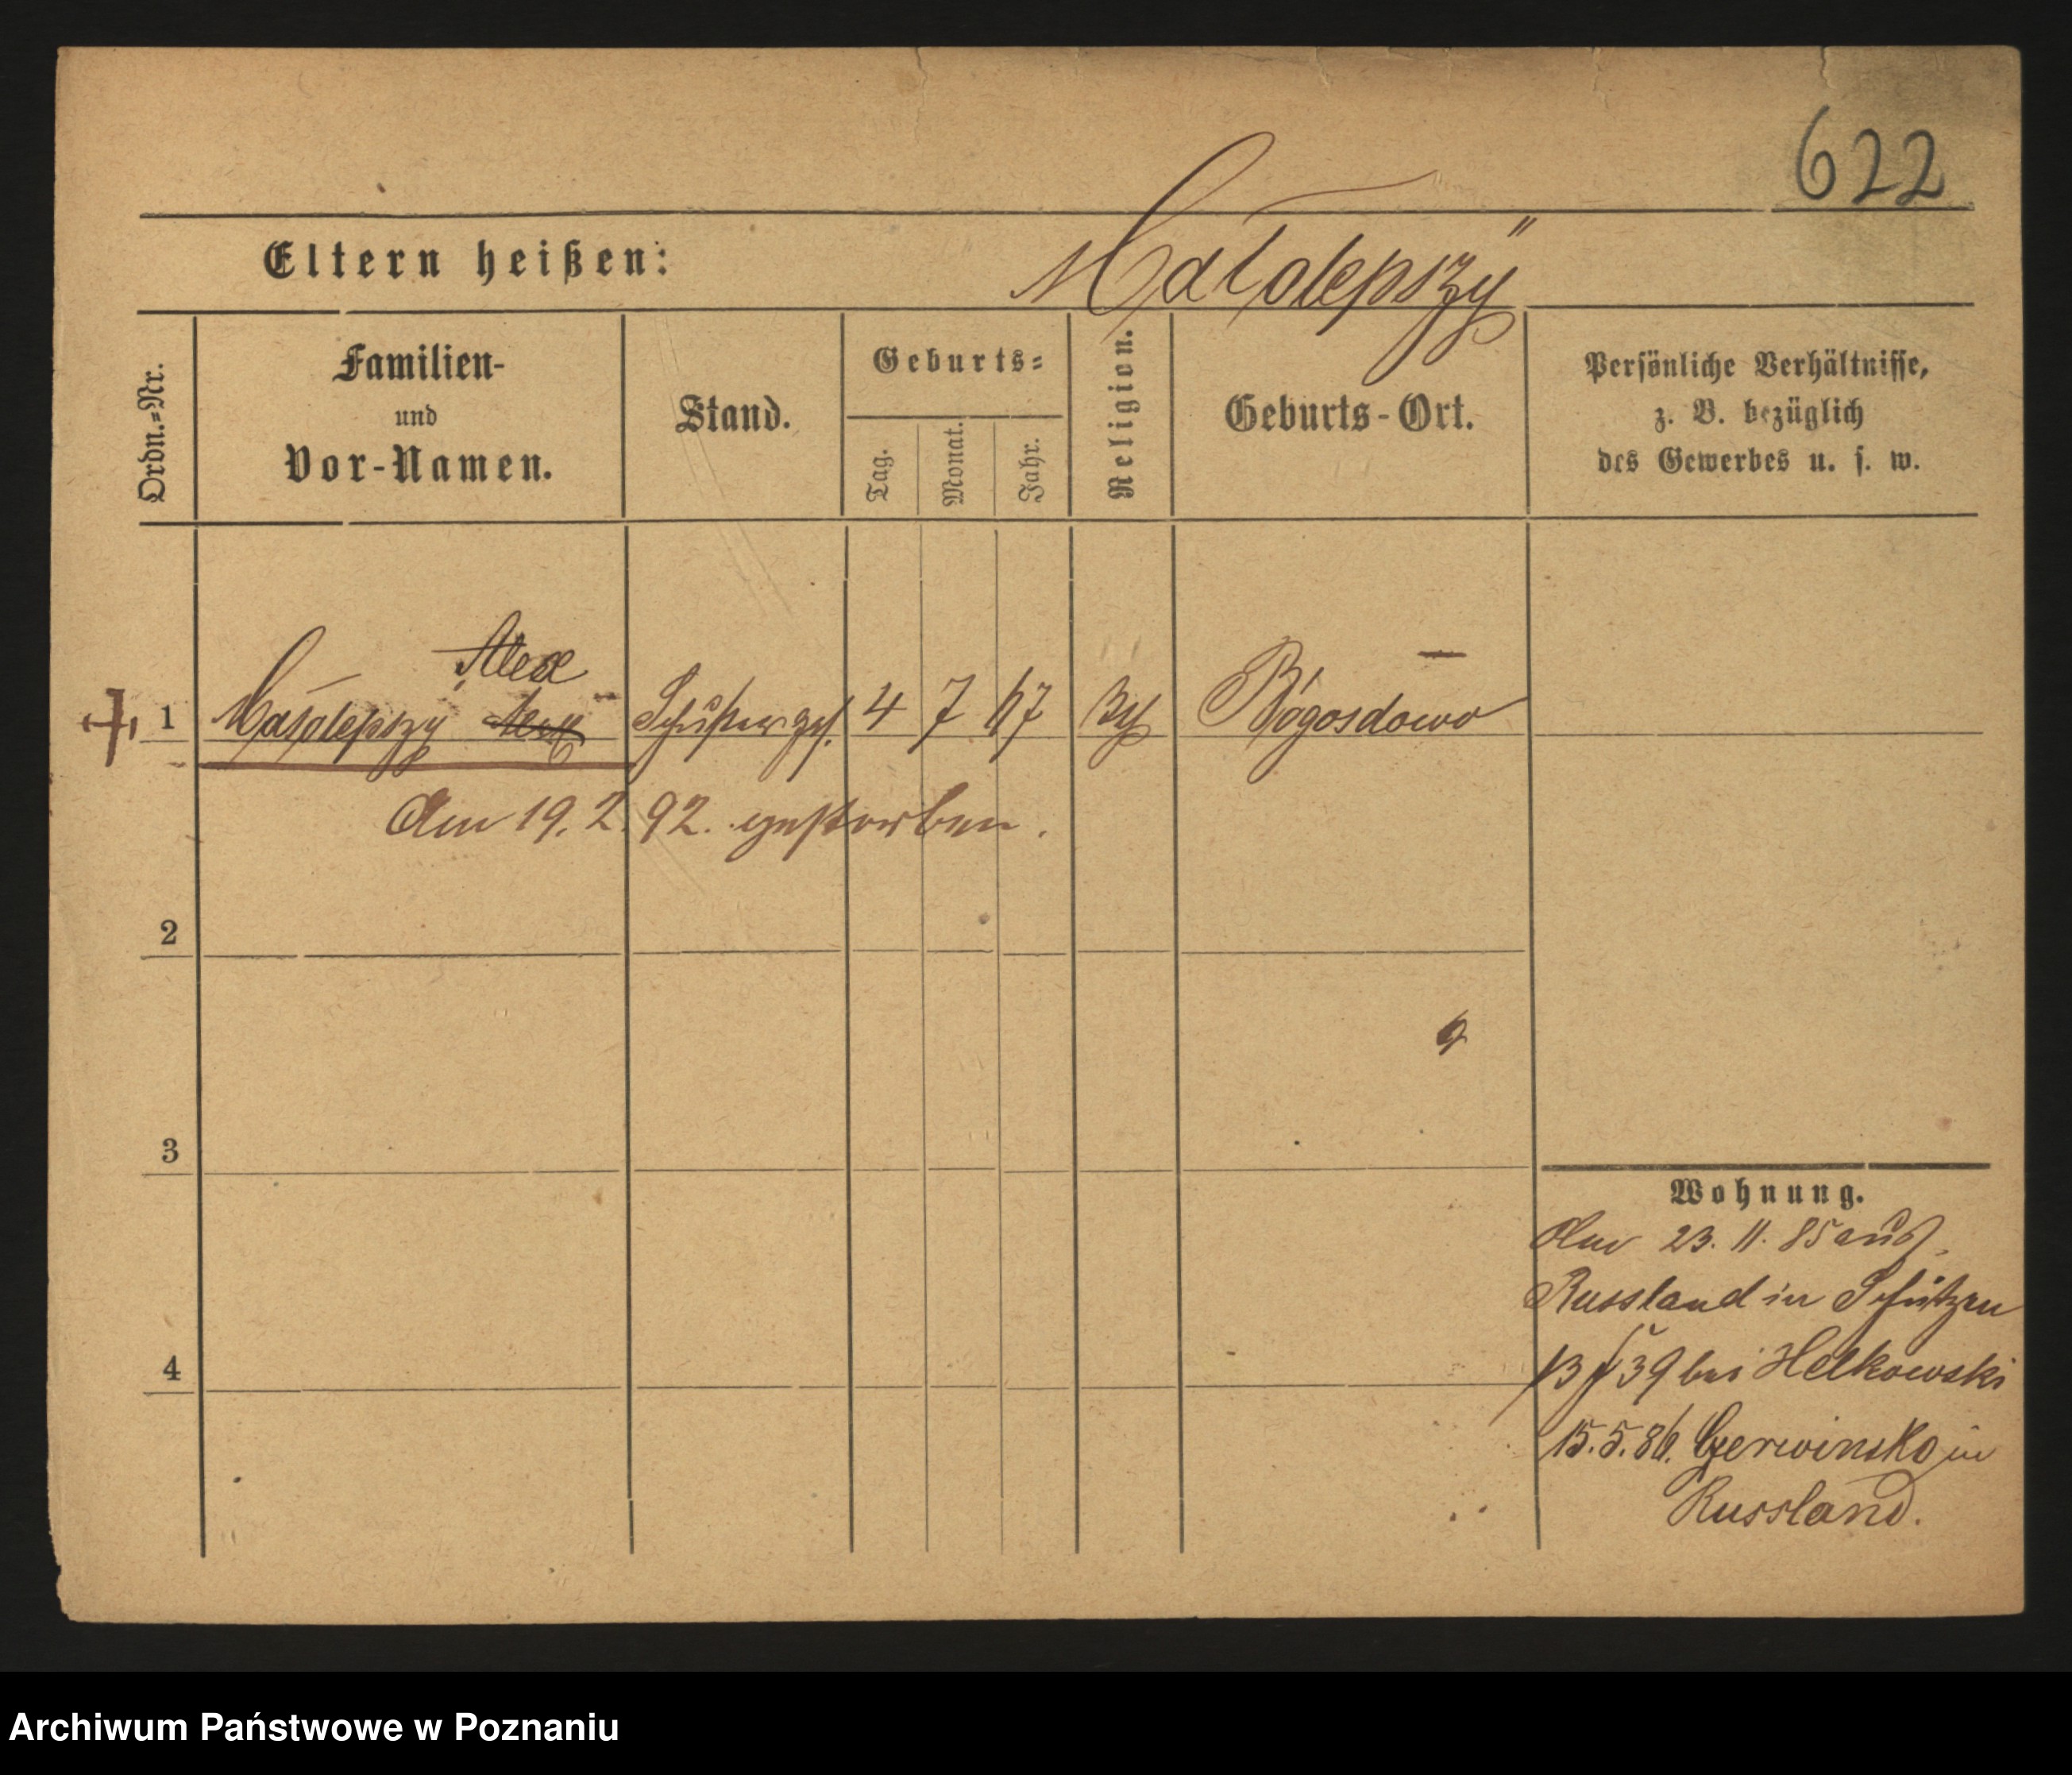 622
Eltern heißen: Małolepszy
Ordn.-Nr.
Familien-
und
Vor-Namen.
Stand.
Geburts-
Tag.
Monat.
Jahr.
Religion.
Geburts-Ort.
Persönliche Verhältnisse,
z. B. bezüglich
des Gewerbes u. s. w.
Alex
1 Małolepszy Alex Schuhm. ges. 4 7 67 Bogosdowo
Am 19. 2. 92. gestorben.
2
3
4
Wohnung.
Am 23. 11. 85 aus
Russland in Schützen
39 bei Helkowski
15. 5. 86. Czerwinsko in
Russland.
Archiwum Państwowe w Poznaniu